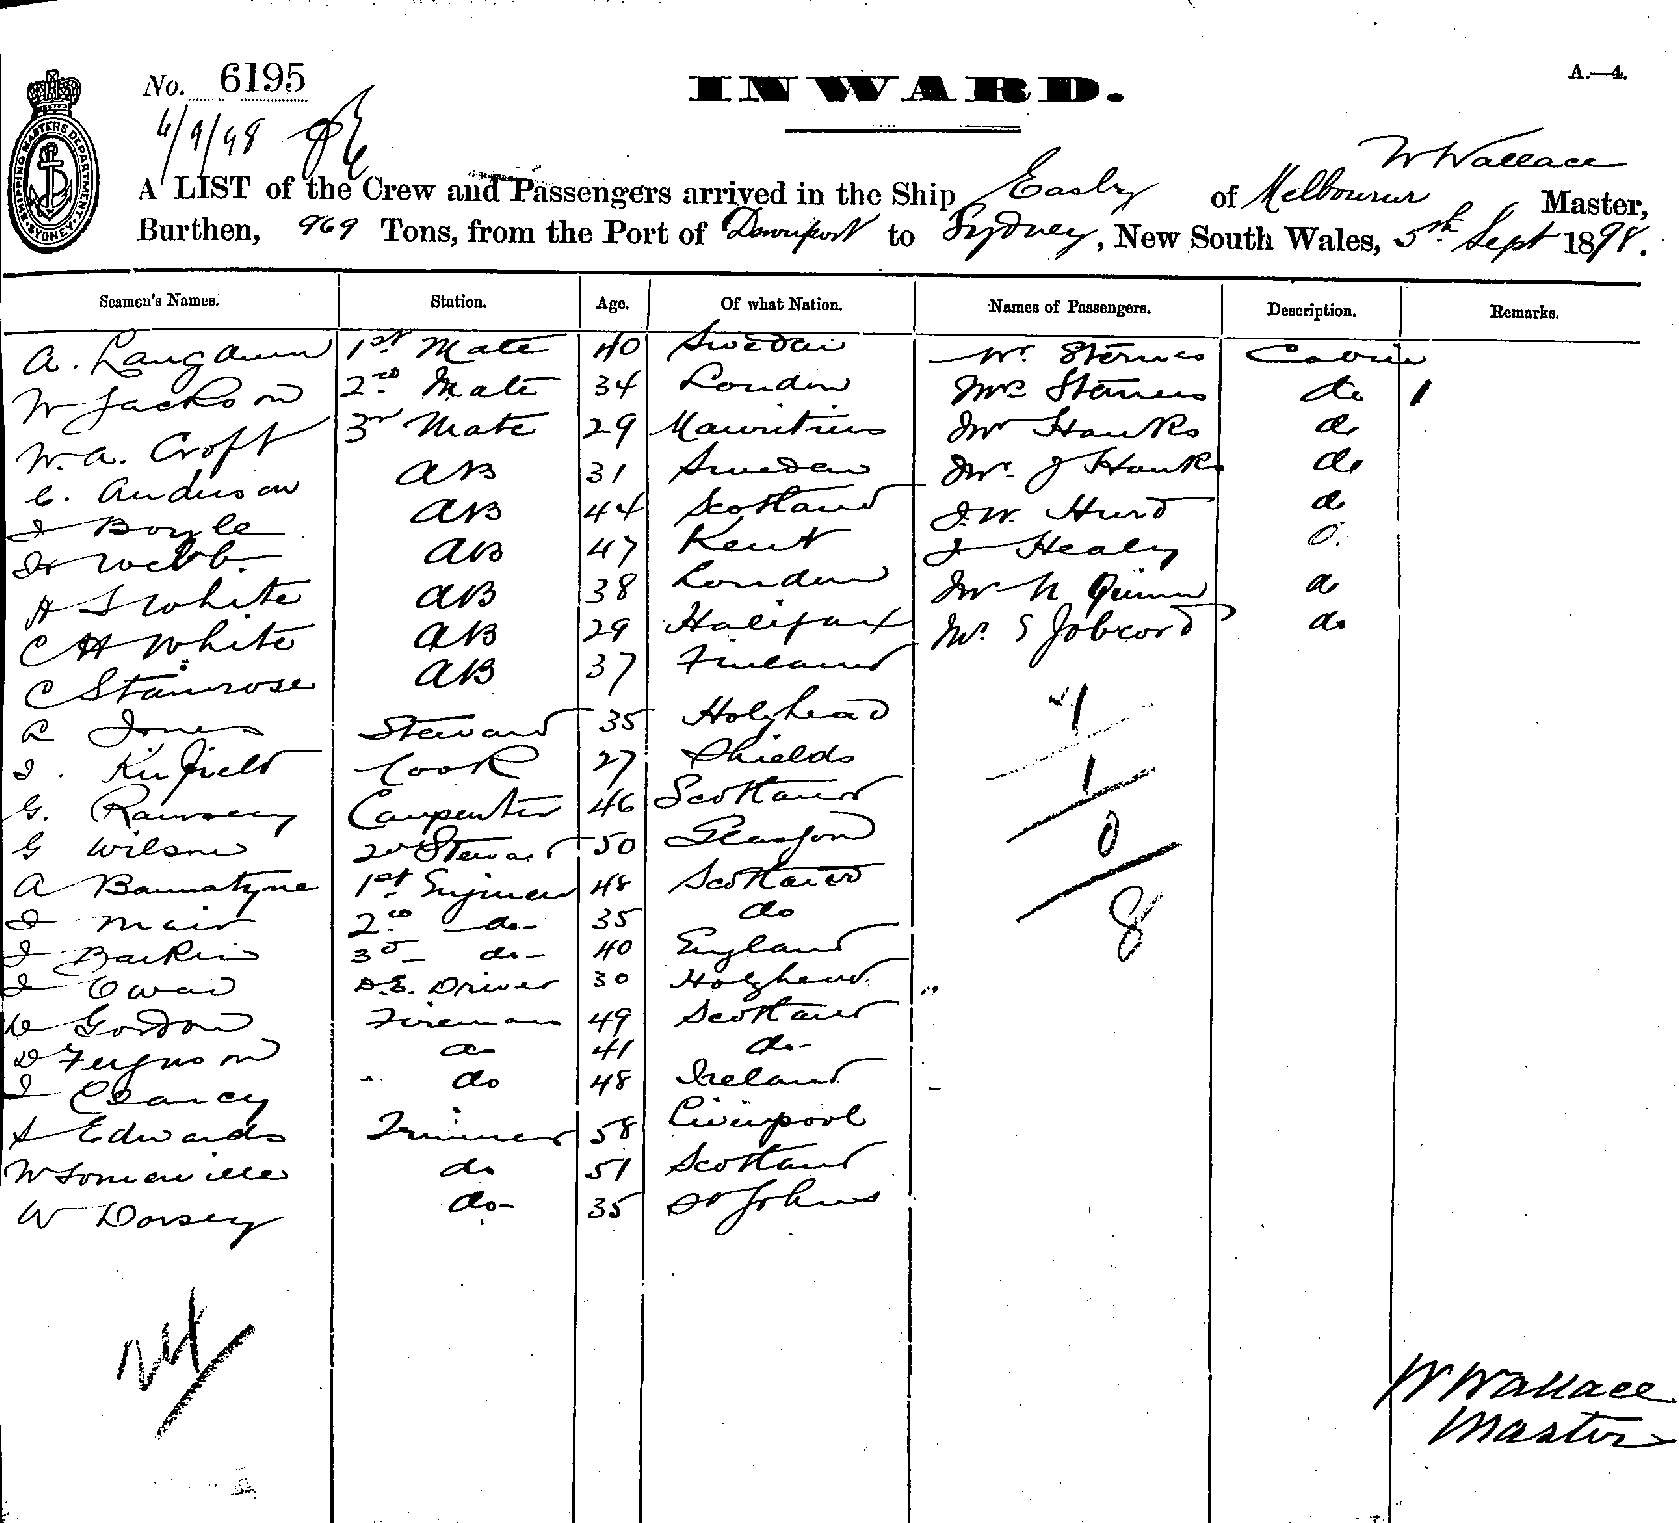 No. 6195
INWARD.
A.—4.
6/9/98
SHIPPING MASTERS DEPARTMENT SYDNEY
W Wallace
A LIST of the Crew and Passengers arrived in the Ship Easby of Melbourne Master,
Burthen, 969 Tons, from the Port of Devonport to Sydney, New South Wales, 5th Sept 1898.
Seamen's Names. Station. Age. Of what Nation. Names of Passengers. Description. Remarks.
A. 1st Mate 40 Sweden Mr Cabin
W Jackson 2nd Mate 34 London Mrs do 1
W. A. Croft 3rd Mate 29 Mauritius Mr Hawks do
C. Anderson AB 31 Sweden Mr. J Hawks do
J Boyle AB 44 Scotland J. W. Hurd do
Webb AB 47 Kent J Healy
H S White AB 38 London Mr N Quinn do
C H White AB 29 Halifax Mr. S do
C AB 37 Finland
R Jones Steward 35 Holyhead
J. Cook 27 Shields
G. Ramsey Carpenter 46 Scotland
G Wilson 2nd Steward 50 Glasgow
A Bannatyne 1st Engineer 48 Scotland
J Muir 2nd do 35 do
J 3rd do 40 England
J Owen D.E. Driver 30 Holyhead
Gordon Fireman 49 Scotland
D Ferguson do 41 do
J Clancy do 48 Ireland
Edwards Trimmer 58 Liverpool
W Somerville do 51 Scotland
W Dorsey do 35 St Johns
1
0
8
24
W Wallace
Master